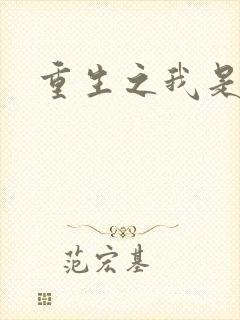 重生之我是
范宏基